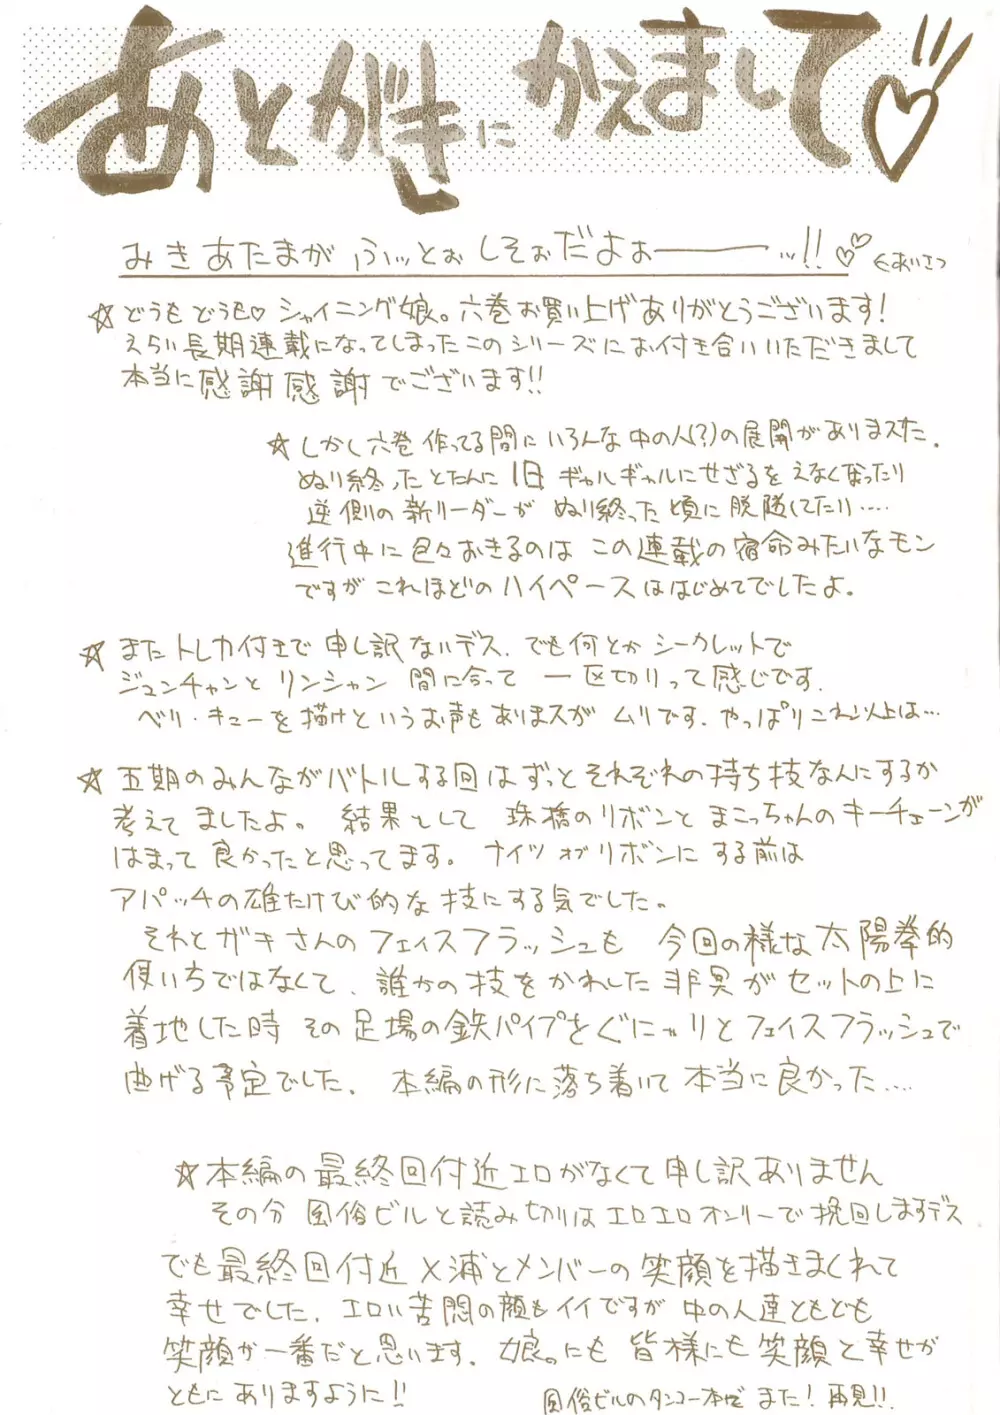 あとがきにかえまして♡
みきあたまがふっとぉしそぉだよぉーーッ!!♡♡ ←あいさつ
☆どうもどうも♡シャイニング娘。六巻お買い上げありがとうございます!
えらい長期連載になってしまったこのシリーズにお付き合いいただきまして
本当に感謝感謝でございます!!
☆しかし六巻作ってる間にいろんな中の人(?)の展開がありまスた.
ぬり終ったとたんに旧ギャルギャルにせざるをえなくなったり
逆側の新リーダーがぬり終った頃に脱隊してたり‥‥
進行中に色々おきるのはこの連載の宿命みたいなモン
ですがこれほどのハイペースははじめてでしたよ。
☆またトレカ付きで申し訳ないデス.でも何とかシークレットで
ジュンチャンとリンシャン間に合って一区切りって感じです.
ベリ・キューを描けというお声もありまスがムリです.やっぱりこれ以上は…
☆五期のみんながバトルする回はずっとそれぞれの持ち技なんにするか
考えてましたよ。結果として珠橋のリボンとまこっちゃんのキーチェーンが
はまって良かったと思ってます。ナイツオブリボンにする前は
アパッチの雄たけび的な技にする気でした。
それとガキさんのフェイスフラッシュも今回の様な太陽拳的
使いちではなくて、誰かの技をかわした非冥がセットの上に
着地した時その足場の鉄パイプをぐにゃりとフェイスフラッシュで
曲げる予定でした.本編の形に落ち着いて本当に良かった‥‥
☆本編の最終回付近エロがなくて申し訳ありません
その分風俗ビルと読み切りはエロエロオンリーで挽回しますデス
でも最終回付近メ浦とメンバーの笑顔を描きまくれて
幸せでした.エロい苦悶の顔もイイですが中の人達ともども
笑顔が一番だと思います.娘。にも皆様にも笑顔と幸せが
ともにありますように!!
風俗ビルのタンコー本でまた!再見!!